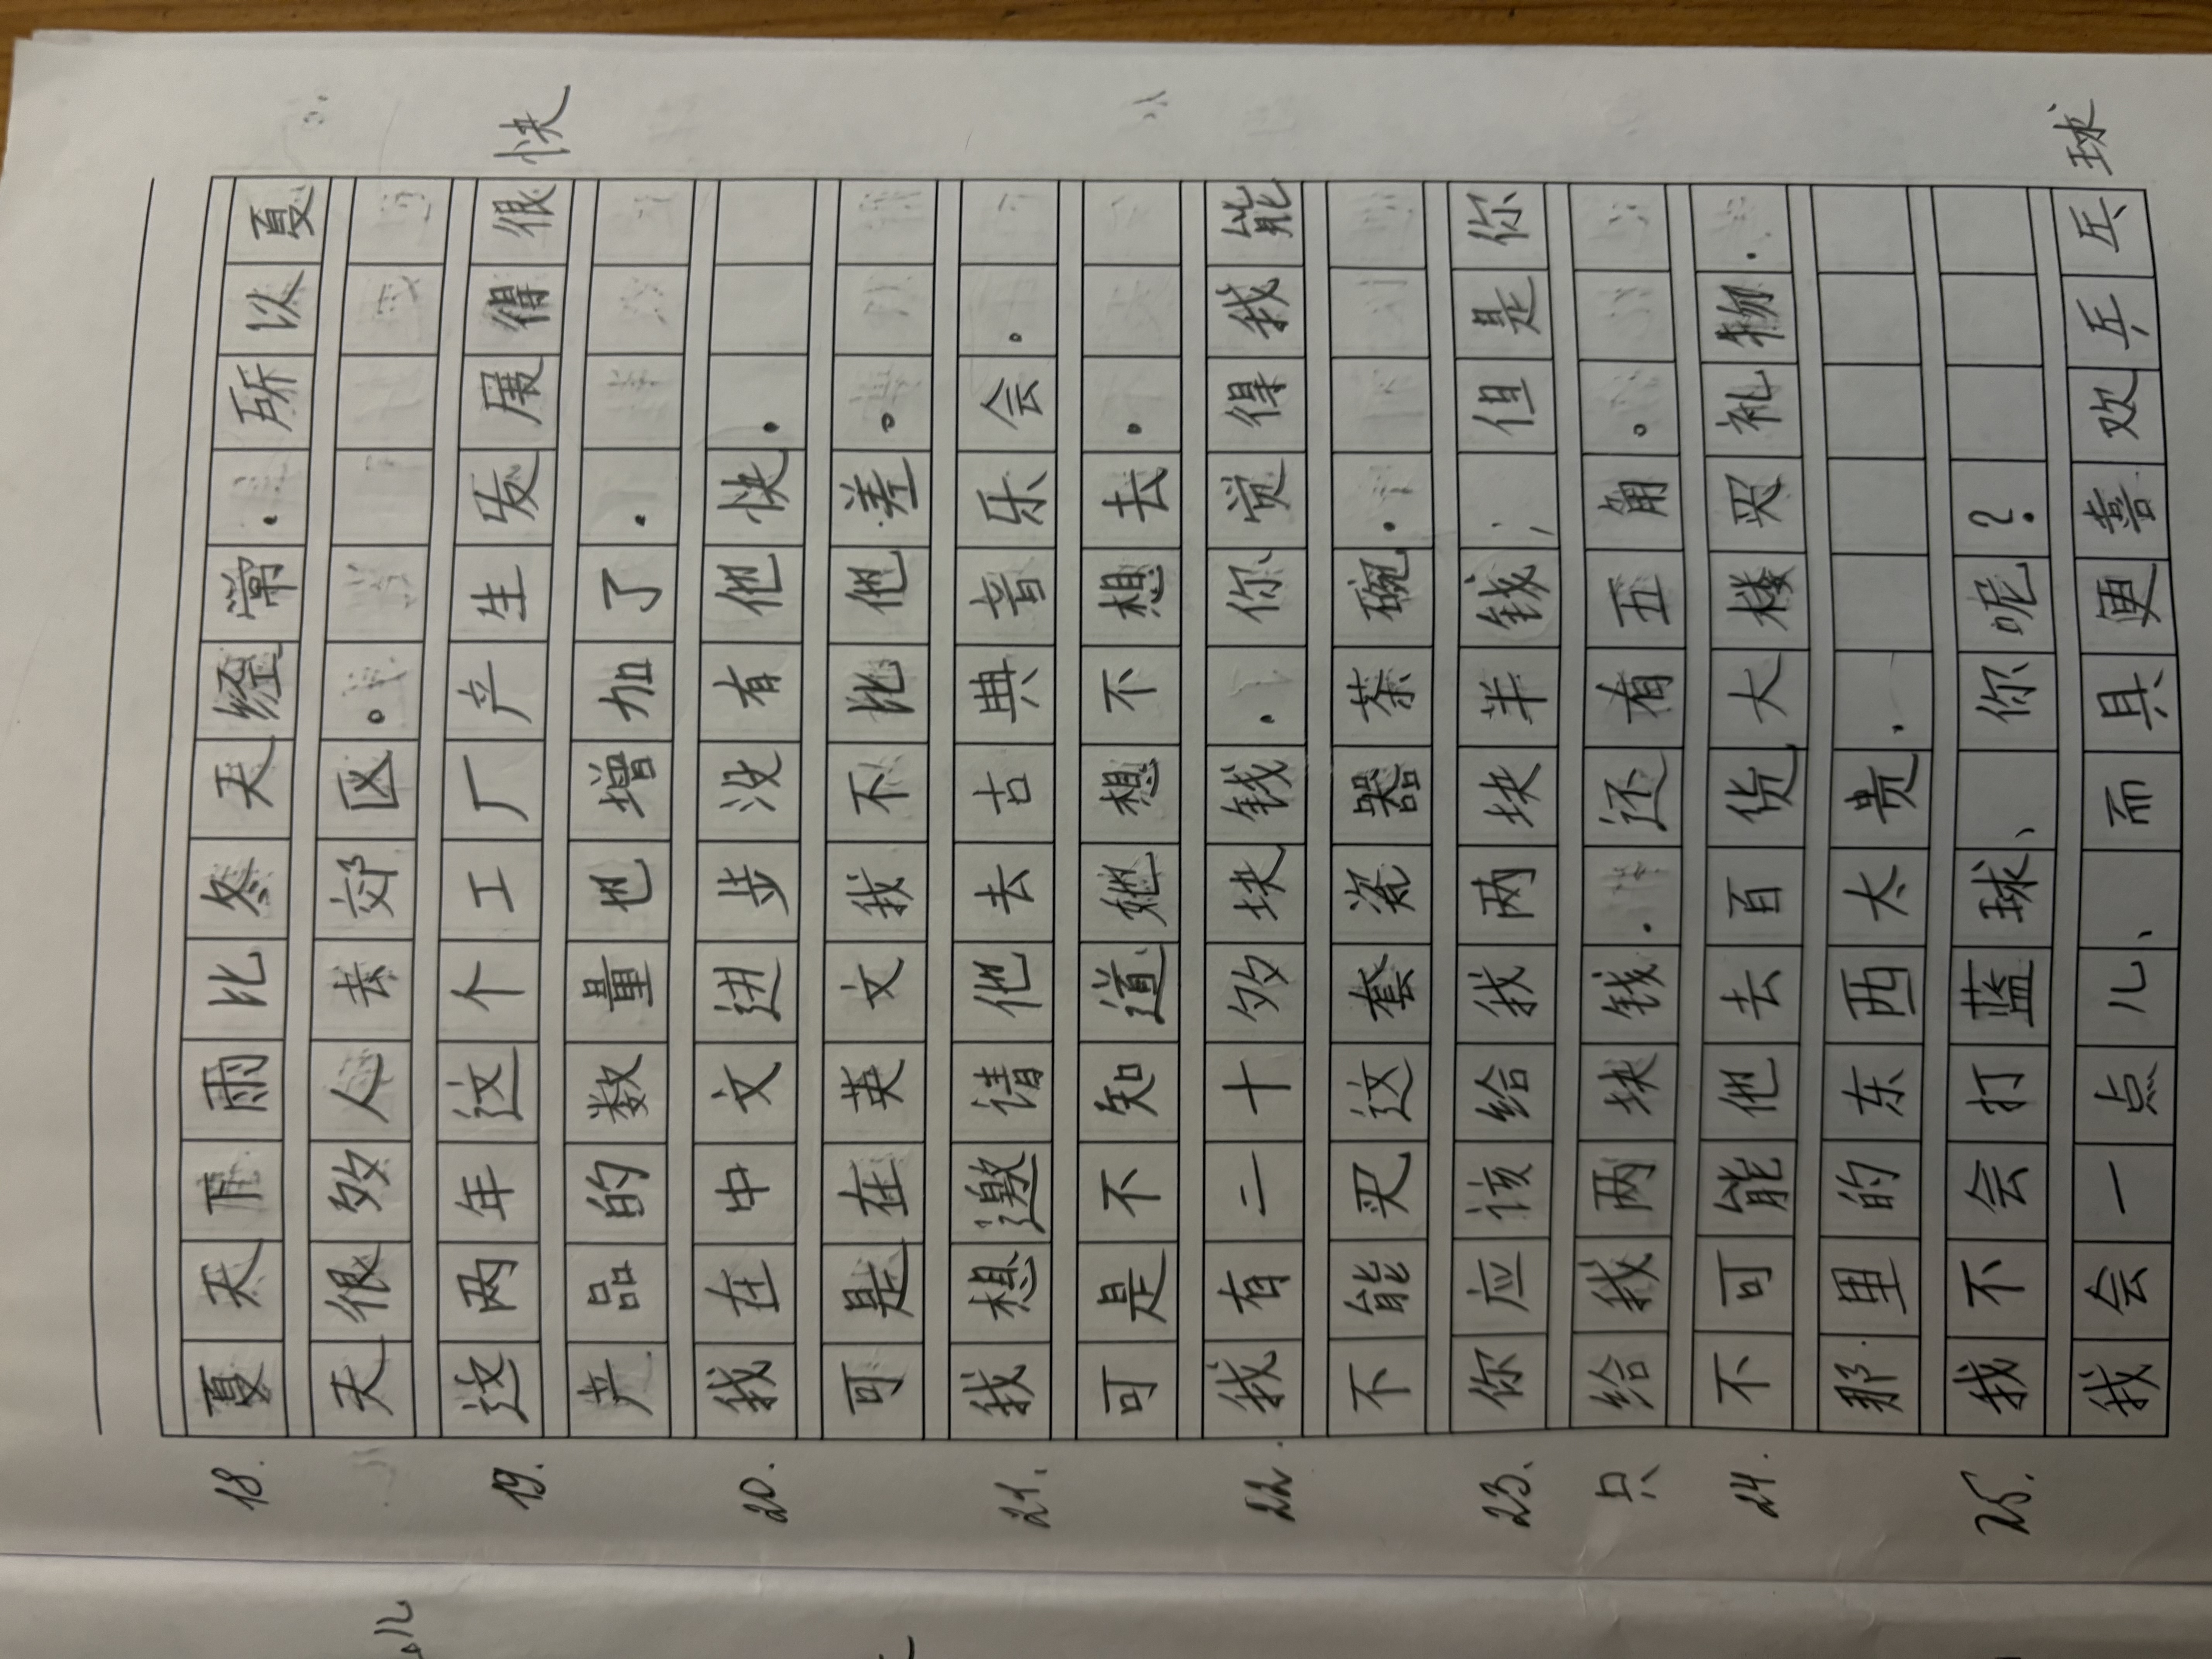 18. 夏天下雨比冬天经常. 所以夏
天很多人去郊区。
19. 这两年这个工厂产生发展得很快
产品的数量也增加了.
20. 我在中文进步没有他快.
可是在英文我不比他差。
21. 我想邀请他去古典音乐会。
可是不知道她想不想去.
22. 我有二十多块钱. 你觉得我能
不能买这套瓷器茶碗.
23. 你应该给我两块半钱; 但是你
只给我两块钱. 还有五角。
24. 不可能他去百货大楼买礼物.
那里的东西太贵.
25. 我不会打蓝球、你呢?
我会一点儿、而具更喜欢乒乓球